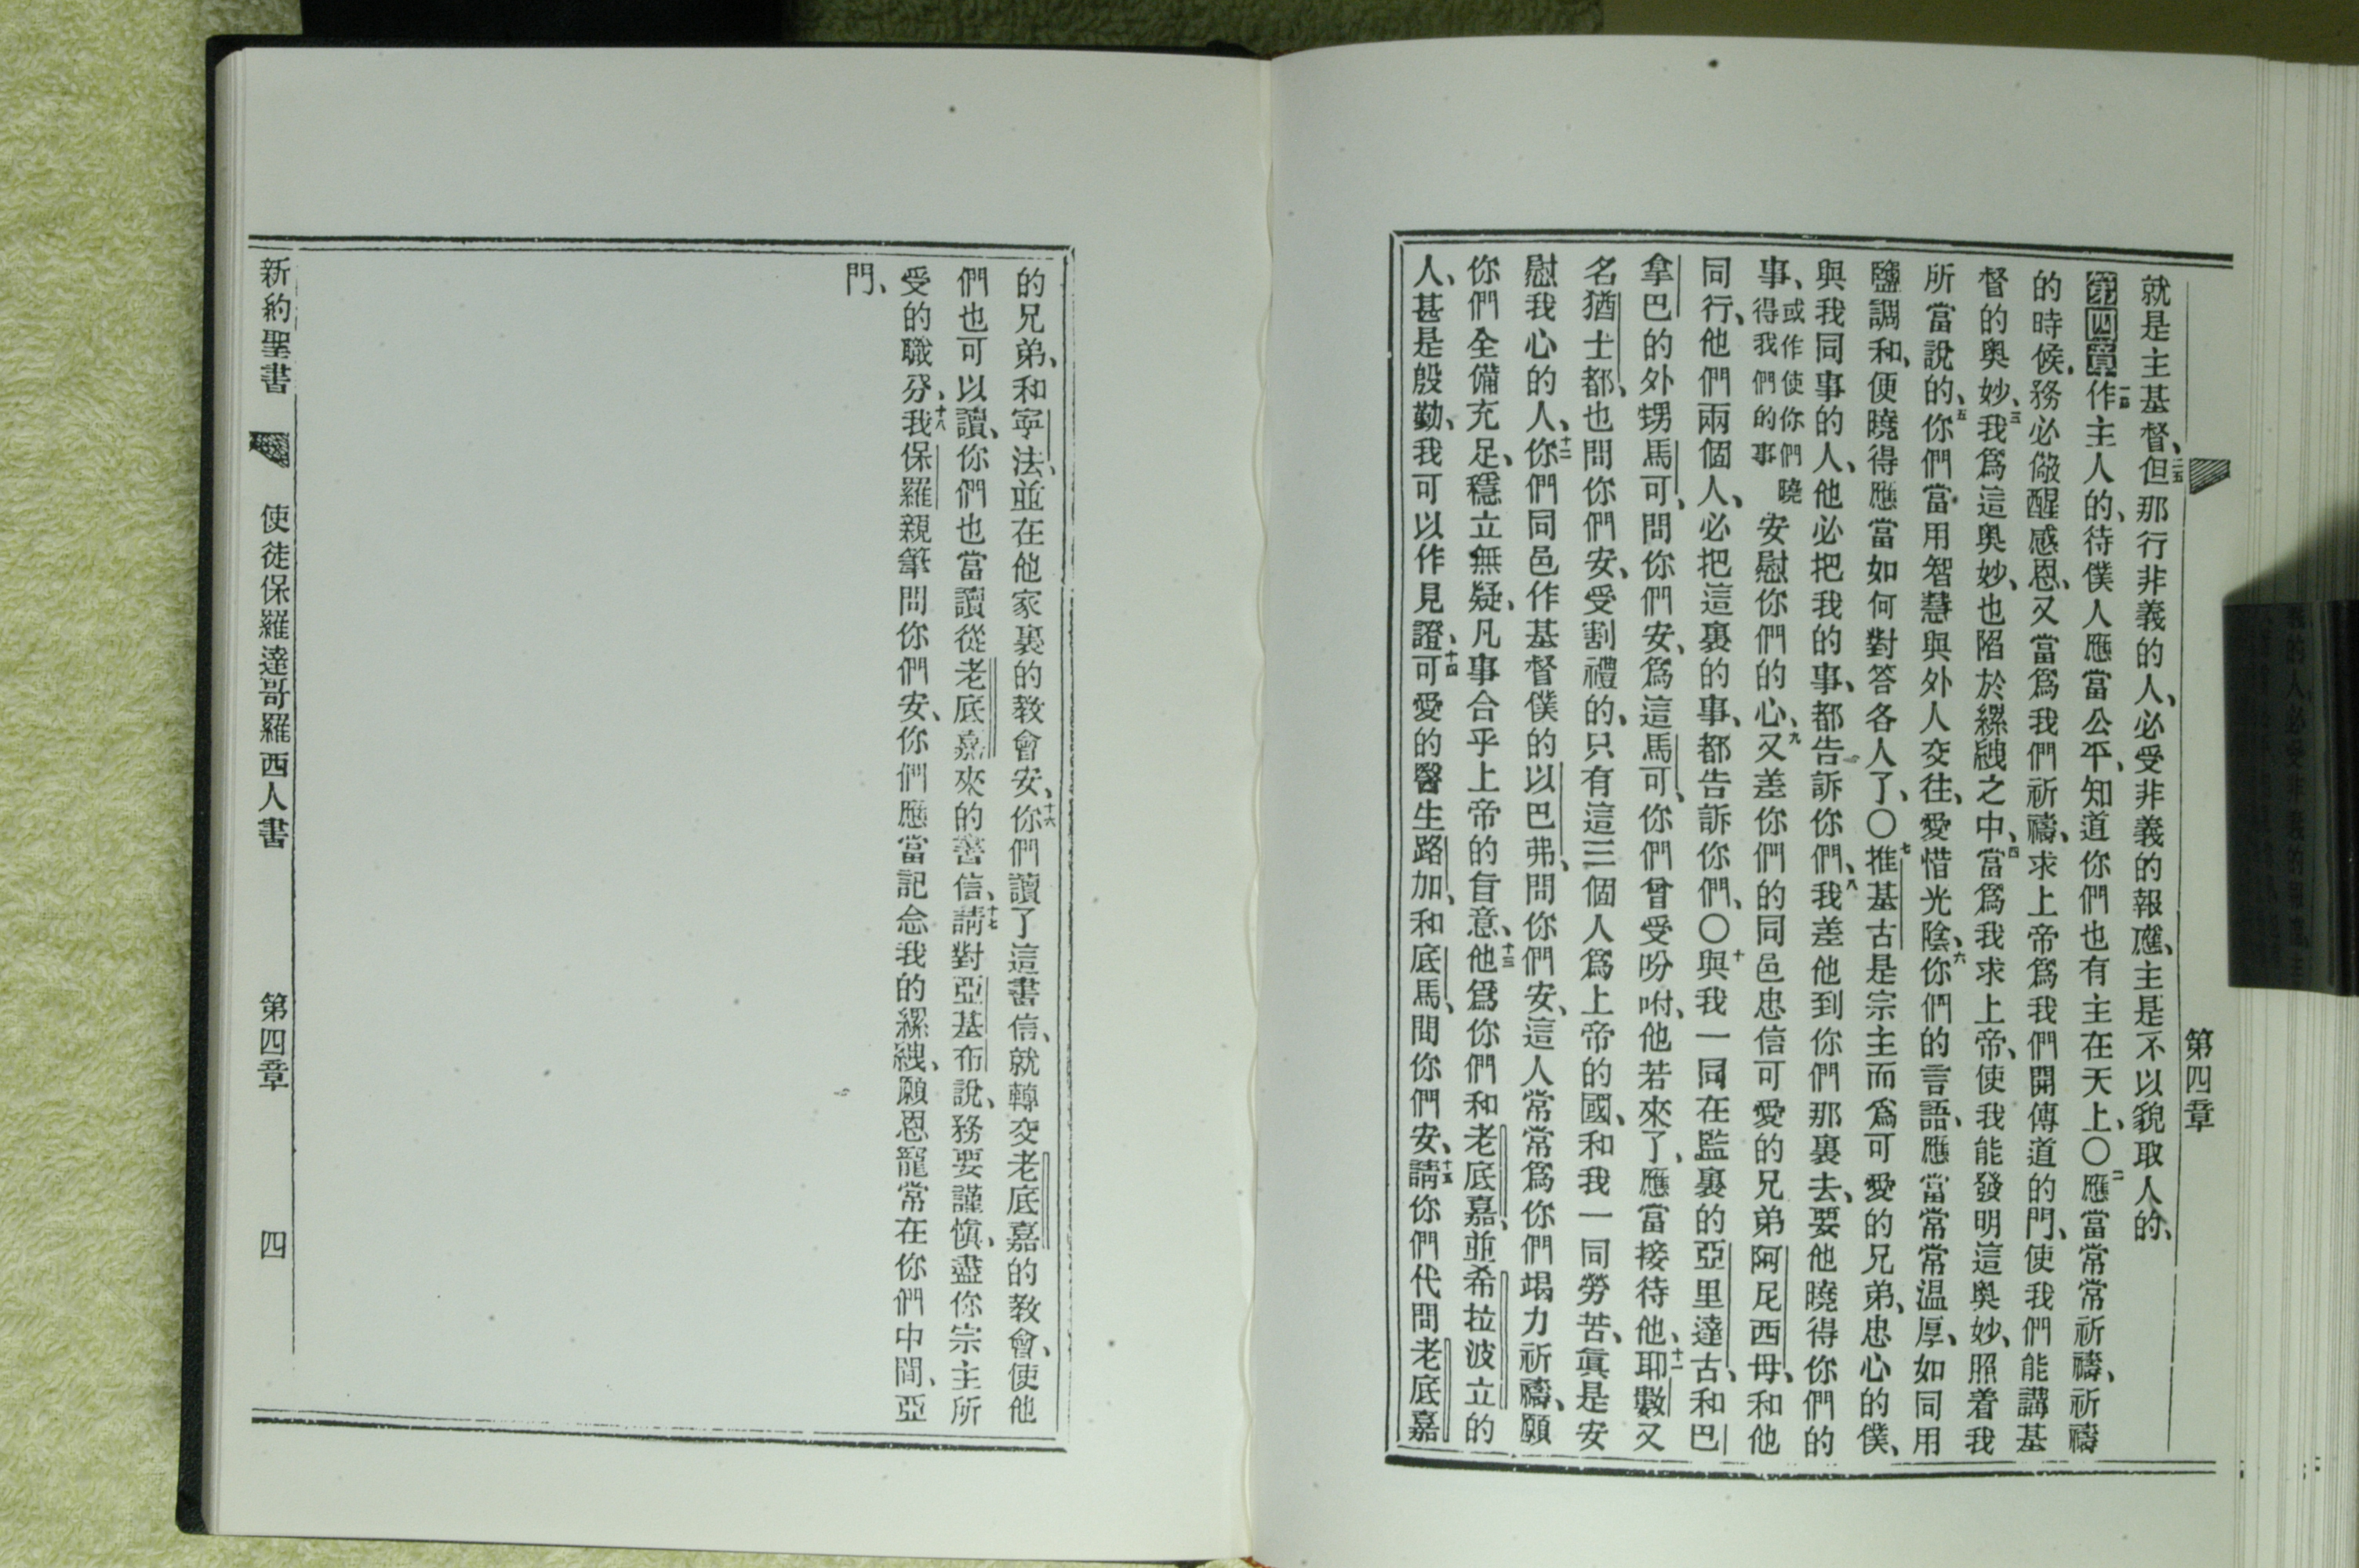 第四章
就是主基督、二五但那行非義的人、必受非義的報應、主是不以貌取人的、
第四章一節作主人的、待僕人應當公平、知道你們也有主在天上、〇二應當常常祈禱、祈禱
的時候、務必儆醒感恩、又當爲我們祈禱、求上帝爲我們開傳道的門、使我們能講基
督的奥妙、三我爲這奥妙、也陷於縲絏之中、四當爲我求上帝、使我能發明這奥妙、照着我
所當說的、五你們當用智慧與外人交往、愛惜光陰、六你們的言語、應當常常温厚、如同用
鹽調和、便曉得應當如何對答各人了、〇七推基古是宗主而爲可愛的兄弟、忠心的僕、
與我同事的人、他必把我的事、都告訴你們、八我差他到你們那裏去、要他曉得你們的
事、或作使你們曉得我們的事安慰你們的心、九又差你們的同邑忠信可愛的兄弟阿尼西母、和他
同行、他們兩個人、必把這裏的事、都告訴你們、〇十與我一同在監裏的亞里達古、和巴
拿巴的外甥馬可、問你們安、爲這馬可、你們曾受吩咐、他若來了、應當接待他、十一耶數又
名猶士都、也問你們安、受割禮的、只有這三個人爲上帝的國、和我一同勞苦、眞是安
慰我心的人、十二你們同邑作基督僕的以巴弗、問你們安、這人常常爲你們竭力祈禱、願
你們全備充足、穩立無疑、凡事合乎上帝的旨意、十三他爲你們和老底嘉、並希拉波立的
人、甚是殷勤、我可以作見證、十四可愛的醫生路加、和底馬、問你們安、十五請你們代問老底嘉
的兄弟、和寧法、並在他家裏的教會安、十六你們讀了這書信、就轉交老底嘉的教會、使他
們也可以讀、你們也當讀從老底嘉來的書信、十七請對亞基布說、務要謹愼、盡你宗主所
受的職分、十八我保羅親筆問你們安、你們應當記念我的縲絏、願恩寵常在你們中間、亞
門、
新約聖書 使徒保羅達哥羅西人書 第四章 四